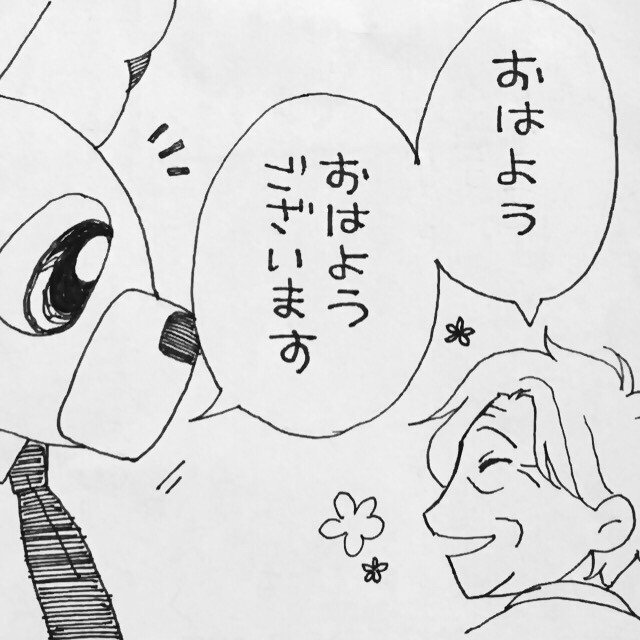 おはよう
おはよう
ございます